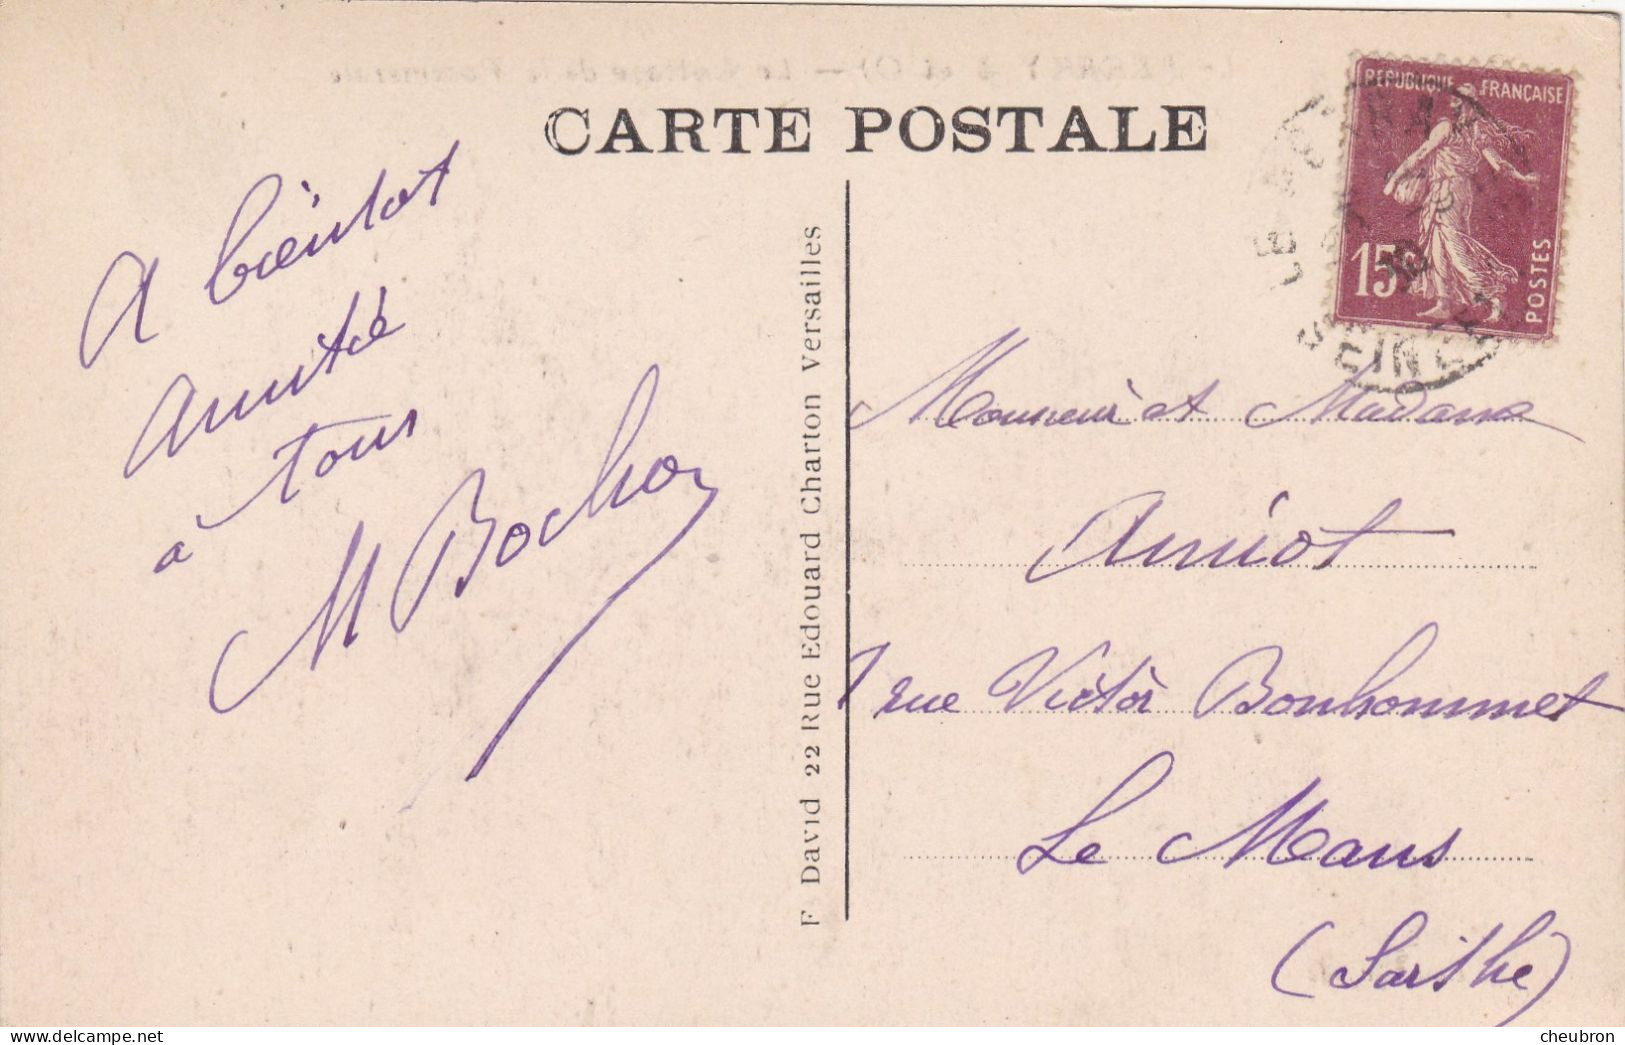 CARTE POSTALE
A bientot
amitié
à tous
M Bochoz
F. David 22 Rue Edouard Charton Versailles
REPUBLIQUE FRANÇAISE
15c
POSTES
Monsieur et Madame
Amiot
7 rue Victor Bonhommet
Le Mans
(Sarthe)
cheubron.com